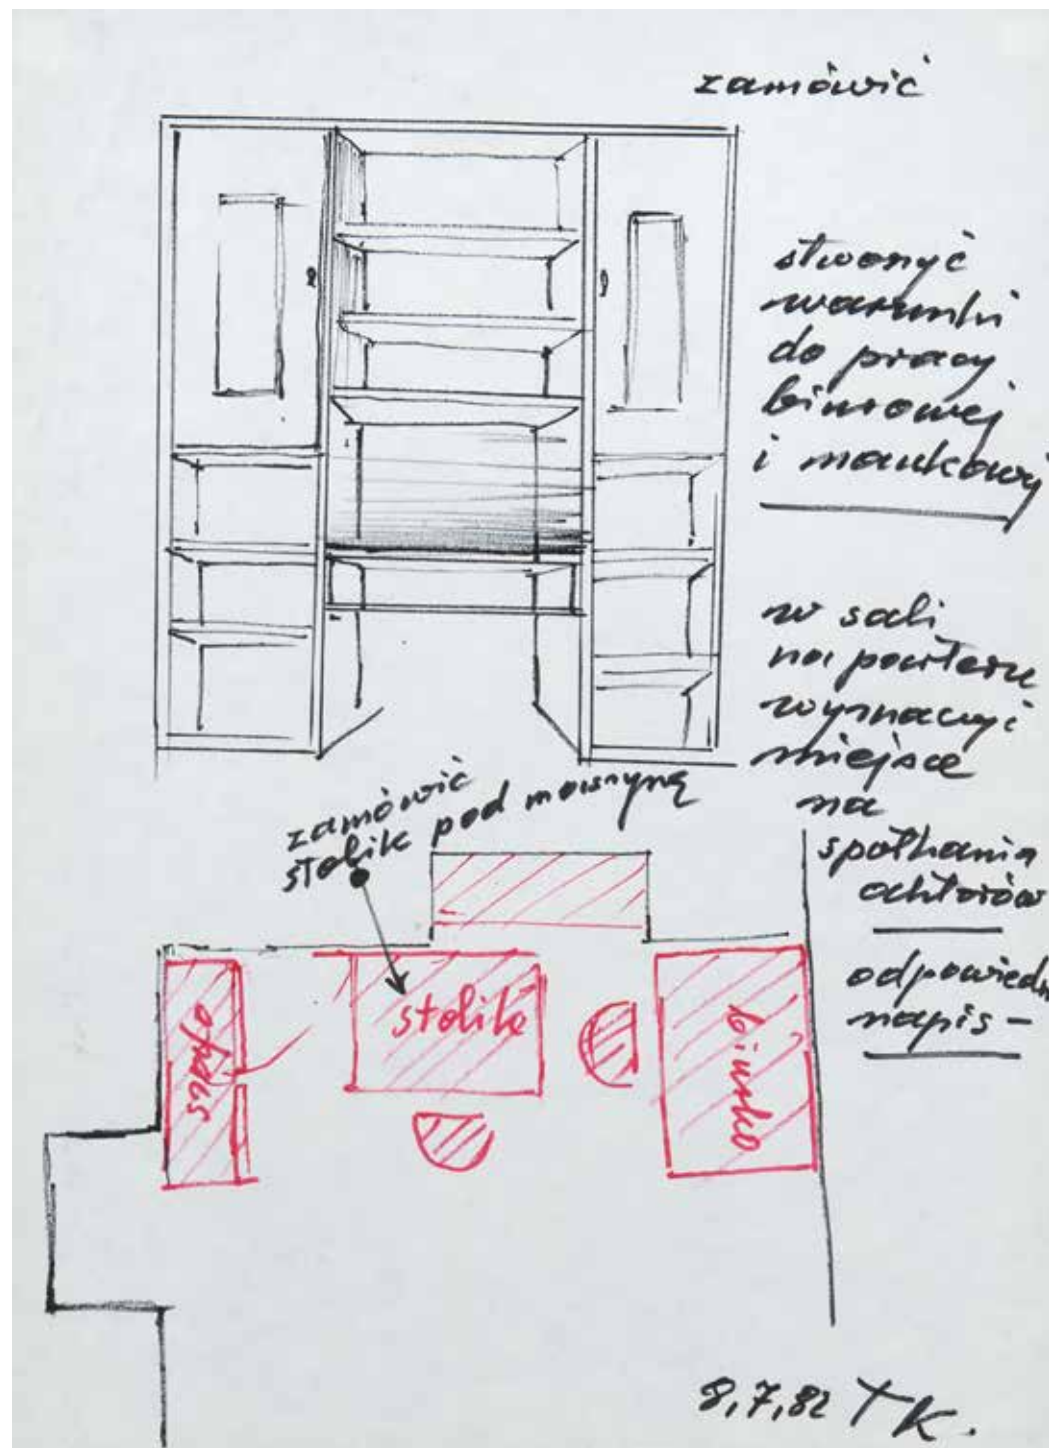 zamówić
stworzyć
warunki
do pracy
biurowej
i naukowej
w sali
na parterze
wyznaczyć
miejsce
na
spotkania
aktorów
odpowiedni
napis –
zamówić
stolik pod maszynę
stolik
biurko
8,7,82 TK.